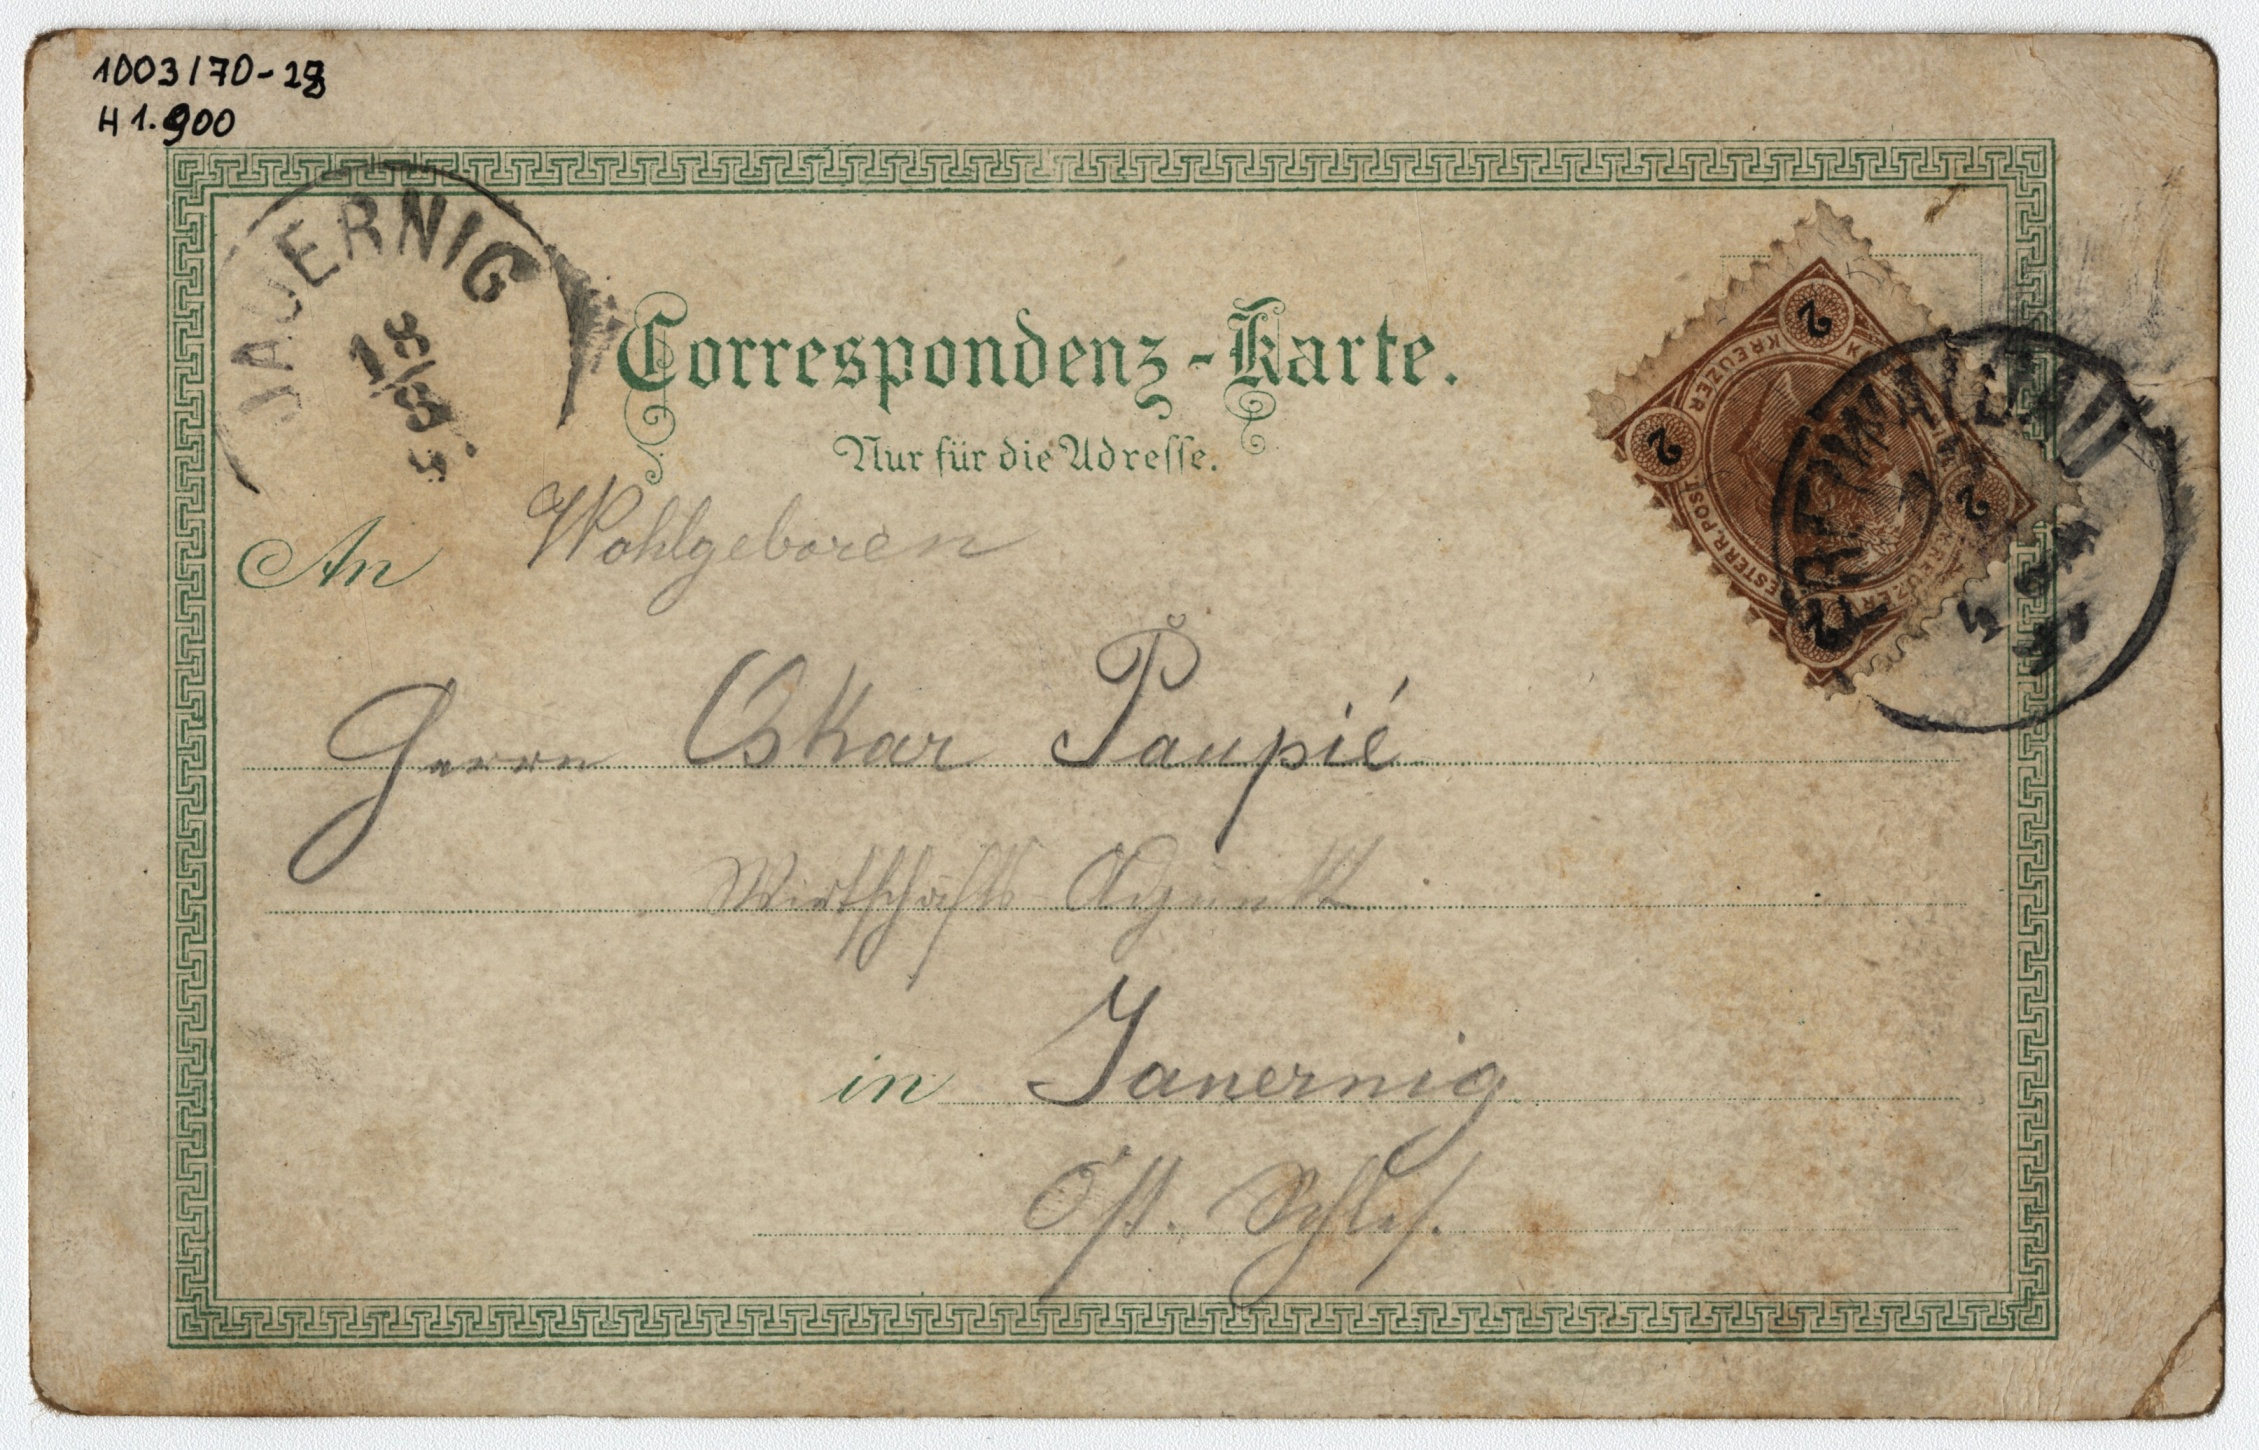 1003/70-28
H 1.900
JAUERNIG
18/8
95
Correspondenz-Karte.
Nur für die Adresse.
2 2 2 2
KREUZER
KREUZER
An Wohlgeboren
Herrn Oskar Paupié
Wirtschafts Adjunkt
in Jauernig
Öst. Schles.